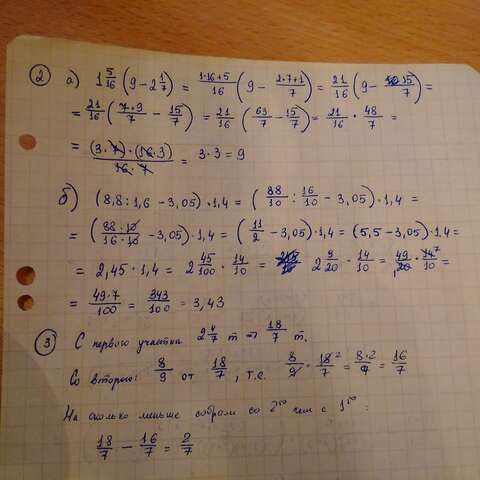 2 а) 1 5/16 (9 - 2 1/7) = (1·16+5)/16 (9 - (2·7+1)/7) = 21/16 (9 - 15/7) =
= 21/16 (7·9/7 - 15/7) = 21/16 (63/7 - 15/7) = 21/16 · 48/7 =
= (3·7)·(16·3)/16·7 = 3·3 = 9
б) (8,8:1,6 - 3,05)·1,4 = (88/10 : 16/10 - 3,05)·1,4 =
= (88·10/16·10 - 3,05)·1,4 = (11/2 - 3,05)·1,4 = (5,5 - 3,05)·1,4 =
= 2,45·1,4 = 2 45/100 · 14/10 = 2 9/20 · 14/10 = 49/20 · 14 7/10 =
= 49·7/100 = 343/100 = 3,43
3 С первого участка 2 4/7 т => 18/7 т.
Со второго: 8/9 от 18/7, т.е. 8/9 · 18 2/7 = 8·2/7 = 16/7
На сколько меньше собрали со 2го чем с 1го:
18/7 - 16/7 = 2/7